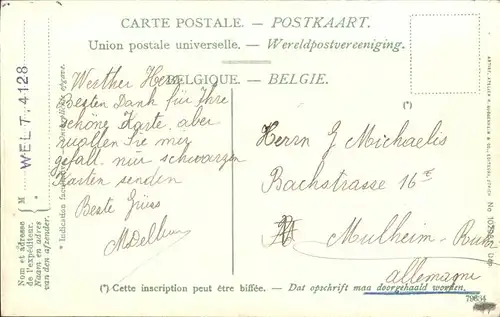 CARTE POSTALE. — POSTKAART.
Union postale universelle. — Wereldpostvereeniging.
BELGIQUE. — BELGIE.
(*)
Werther Herr
Besten Dank für Ihre
schöne Karte, aber
wollen Sie mir
gefäl. nur schwarzen
Karten senden
Beste Grüss
Herrn G Michaelis
Bachstrasse 16
Mülheim-Ruhr
allemagne
(*) Cette inscription peut être biffée. — Dat opschrift maa doorgehaald worden.
79634
WELT: 4128
M
Nom et adresse
de l'expéditeur.
Naam en adres
van den afzender.
* Indication